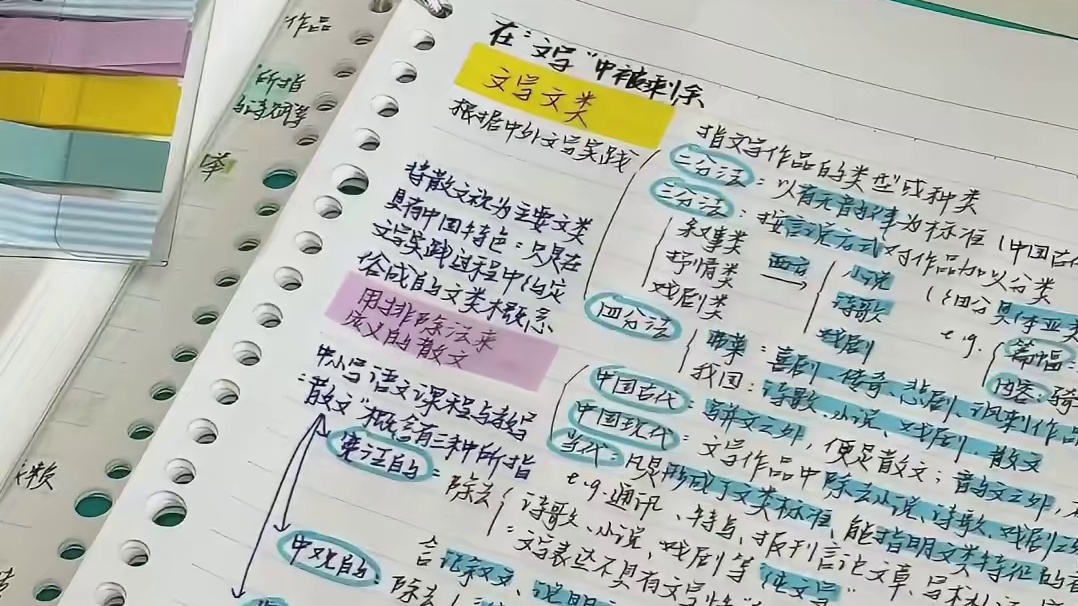 作品
所指
在“文学”中被剩余
文学文类
根据中外文学实践
指文学作品的类型或种类
二分法：以有无韵律为标准（中国古
三分法：按言说方式对作品加以分类
叙事类
抒情类
戏剧类
西方
小说
诗歌
戏剧
（细分具体亚类
e.g.
篇幅：
内容：骑
将散文视为主要文类
具有中国特色：只是在
文学实践过程中约定
俗成的文类概念
四分法
西方：喜剧、传奇、悲剧、讽刺作品
我国：诗歌、小说、戏剧、散文
用排除法来
定义的散文
中国古代：与骈文之外，便是散文；韵文之外，
中国现代：文学作品中除去小说、诗歌、戏剧之
当代：凡是形成了文类标准、能指明文类特征的
e.g.通讯、特写、报刊言论文章、
中小学语文课程与教学
：“散文”概念有三种所指
广泛的：除去
诗歌、小说、戏剧等“纯文学”
：文字表达不具有文学特
中观的：
含记叙文、说明
除去